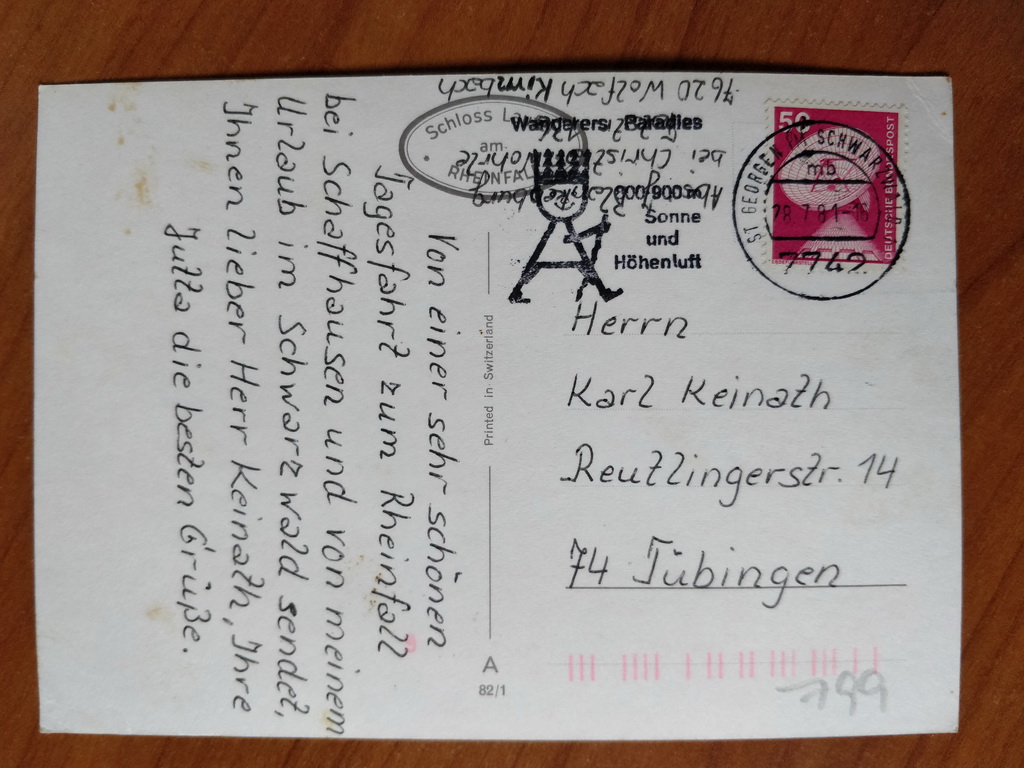 Von einer sehr schönen
Tagesfahrt zum Rheinfall
bei Schaffhausen und von meinem
Urlaub im Schwarzwald sendet,
Ihnen lieber Herr Keinath, Ihre
Jutta die besten Grüße.
Schloss
am
RHEINFALL
bei Christ Wöhrle
7620 Wolfach Kirnbach
Wanderers Paradies
Sonne
und
Höhenluft
50
DEUTSCHE BUNDESPOST
ST GEORGEN IM SCHWARZ
mb
28.7.81-18
7742
Herrn
Karl Keinath
Reutlingerstr. 14
74 Tübingen
Printed in Switzerland
A
82/1
199